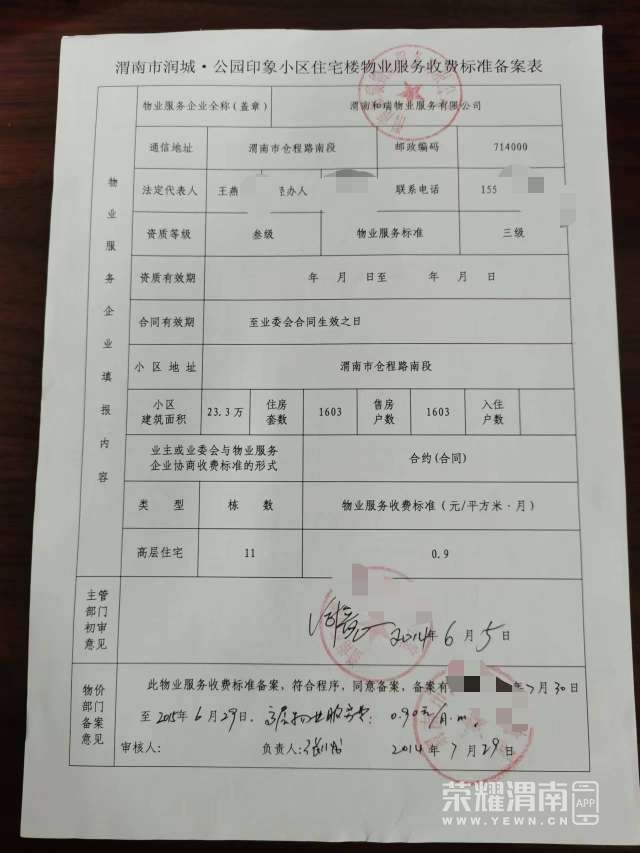 渭南市润城·公园印象小区住宅楼物业服务收费标准备案表
物业服务企业填报内容
物业服务企业全称(盖章) 渭南和瑞物业服务有限公司
通信地址 渭南市仓程路南段 邮政编码 714000
法定代表人 王燕 办人 联系电话 155
资质等级 叁级 物业服务标准 三级
资质有效期 年 月 日至 年 月 日
合同有效期 至业委会合同生效之日
小区地址 渭南市仓程路南段
小区建筑面积 23.3万 住房套数 1603 售房户数 1603 入住户数
业主或业委会与物业服务
企业协商收费标准的形式 合约(合同)
类 型 栋 数 物业服务收费标准(元/平方米·月)
高层住宅 11 0.9
主管部门初审意见
2014年6月5日
物价部门备案意见
此物业服务收费标准备案,符合程序,同意备案,备案有 年7月30日
至2015年6月29日。高层物业服务费:0.90元/月.m,
审核人: 负责人: 2014年7月29日
荣耀渭南 APP
WWW.YEWN.CN